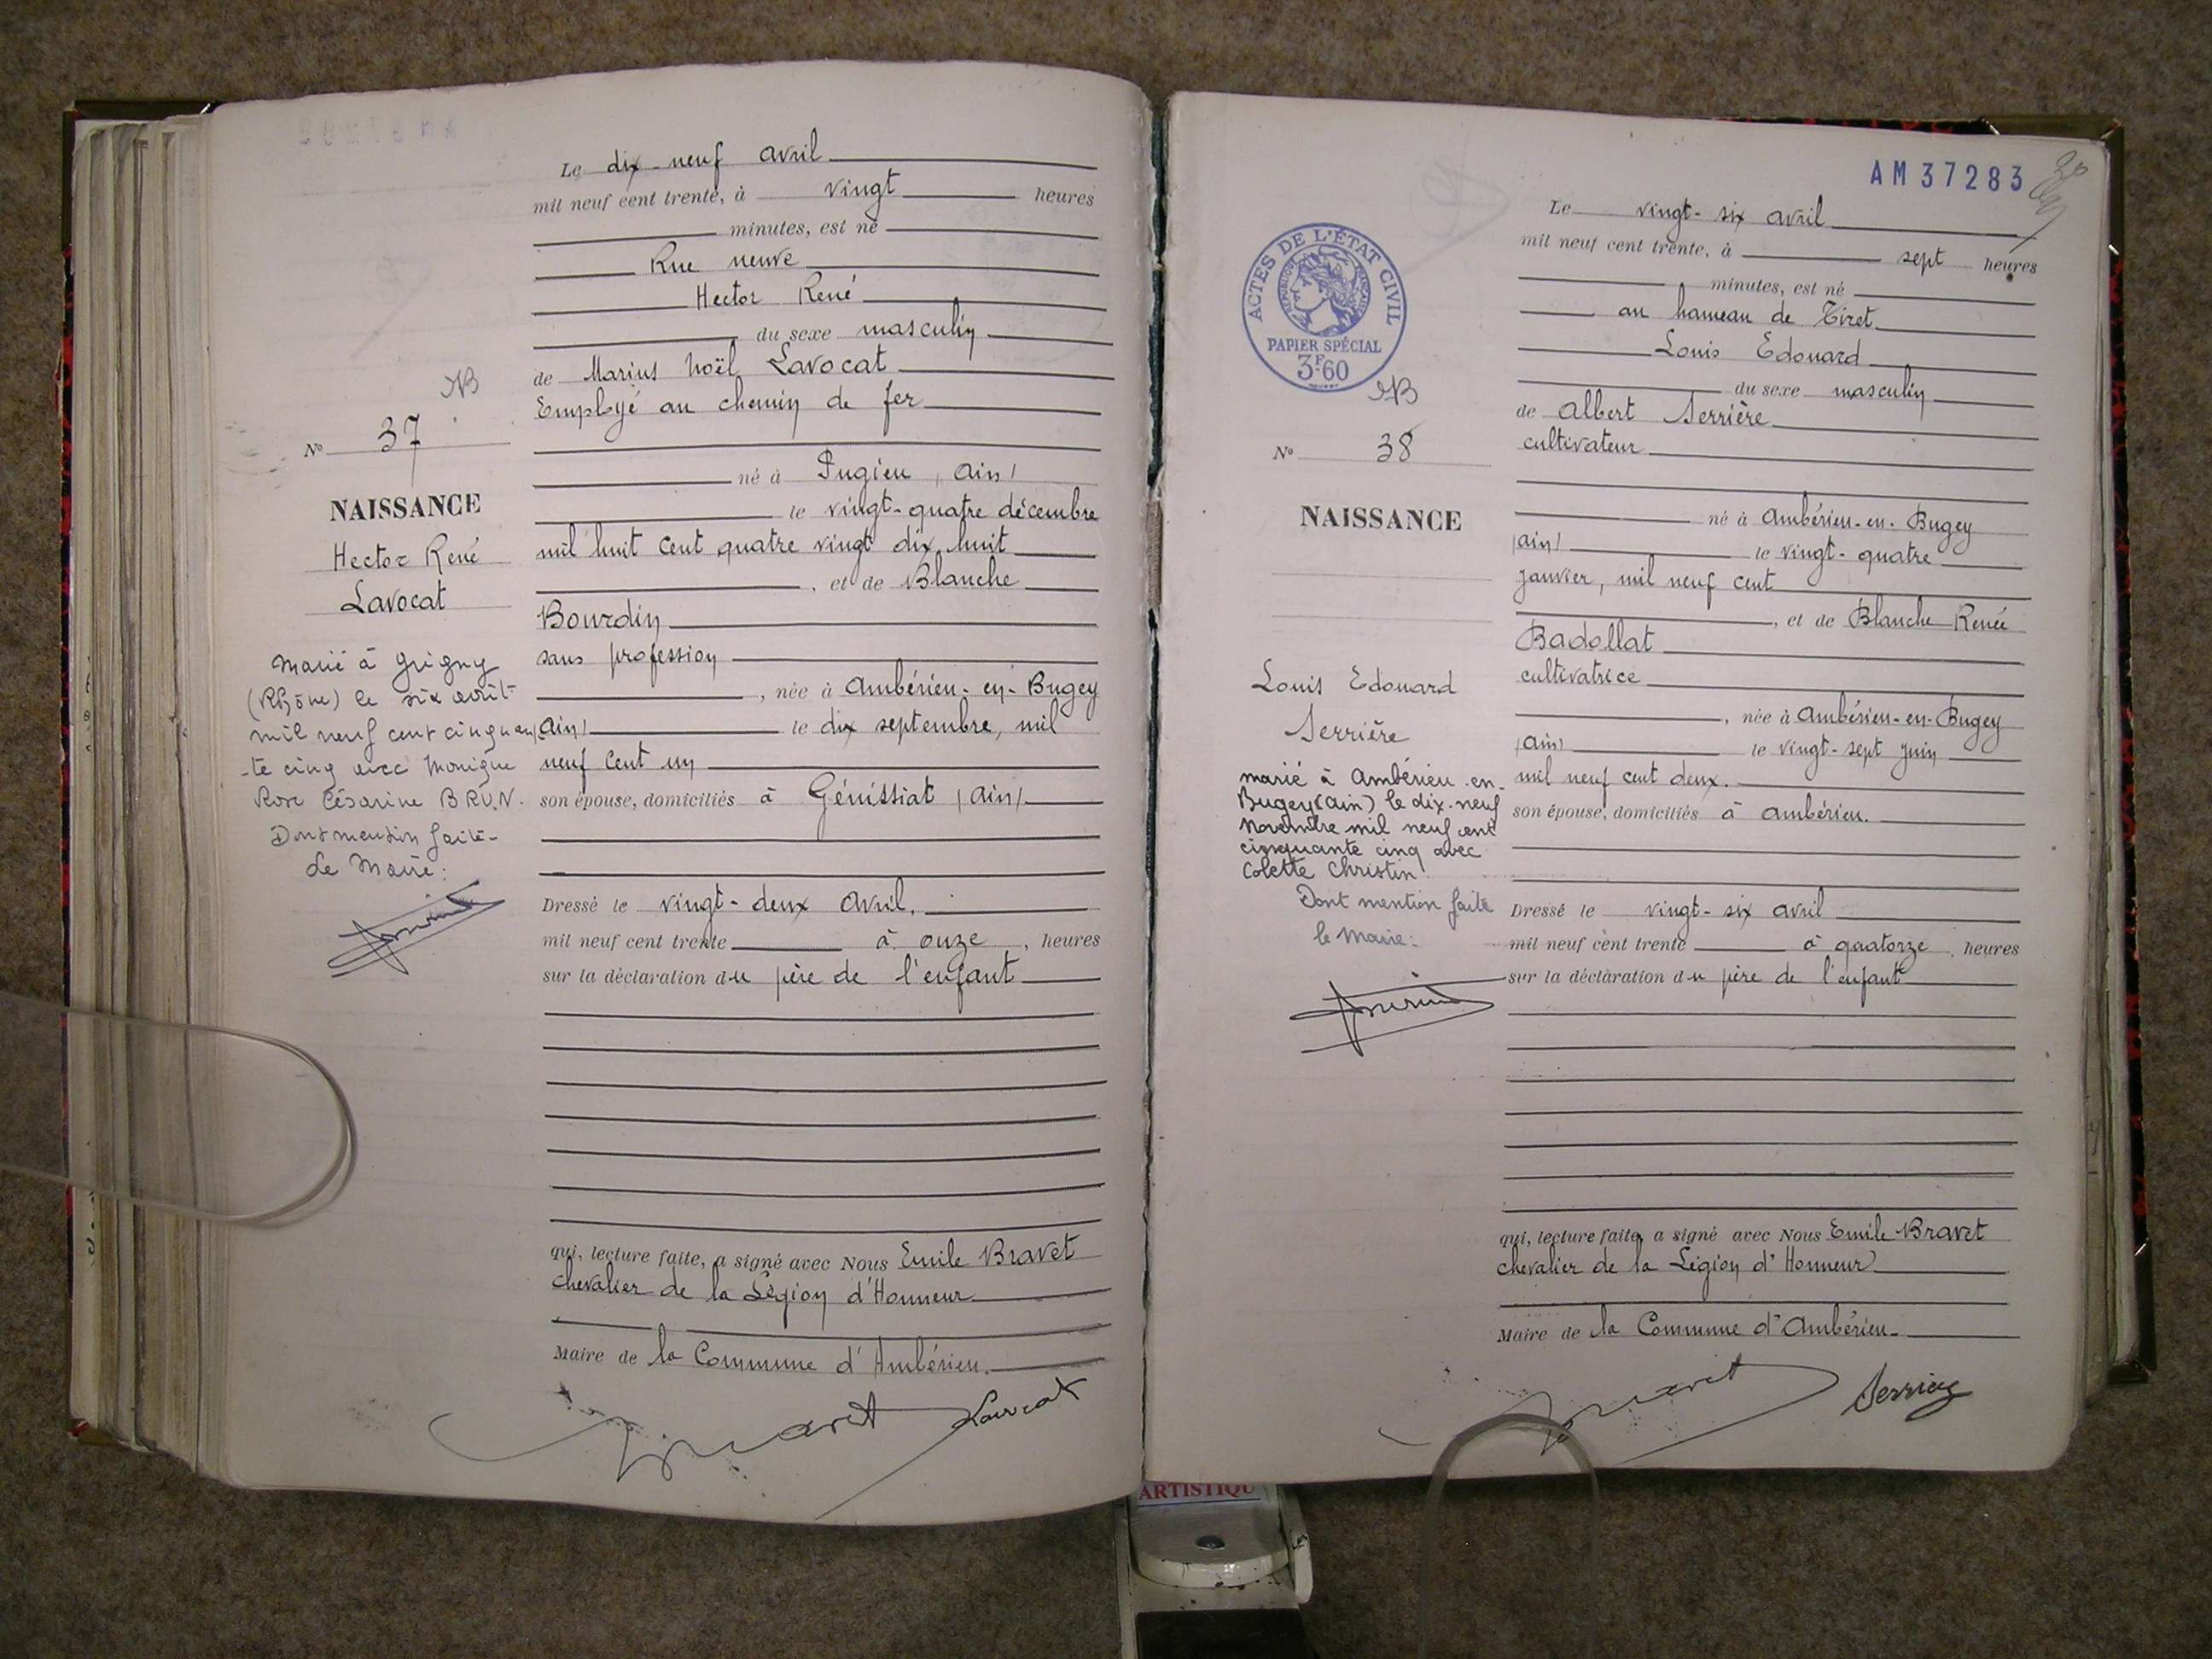 Le dix-neuf avril
mil neuf cent trente, à vingt heures
minutes, est né
Rue neuve
Hector René
du sexe masculin
de Marius Noël Lavocat
Employé au chemin de fer
né à Pugieu (Ain)
le vingt-quatre décembre
mil huit cent quatre vingt dix huit
, et de Blanche
Bourdin
sans profession
, née à Ambérieu-en-Bugey
(Ain) le dix septembre, mil
neuf cent un
son épouse, domiciliés à Génissiat (Ain)
Dressé le vingt-deux avril,
mil neuf cent trente à onze, heures
sur la déclaration du père de l'enfant
qui, lecture faite, a signé avec Nous Emile Bravet
chevalier de la Légion d'Honneur
Maire de la Commune d'Ambérieu.
Bravet Lavocat
NB
N° 37
NAISSANCE
Hector René
Lavocat
Marié à Grigny
(Rhône) le six août
mil neuf cent cinquan
-te cinq avec Monique
Rose Césarine BRUN.
Dont mention faite
Le Maire:
AM37283
ACTES DE L'ÉTAT CIVIL
RÉPUBLIQUE FRANÇAISE
PAPIER SPÉCIAL
3F60
NB
N° 38
NAISSANCE
Louis Edouard
Serrière
marié à Ambérieu-en-
Bugey (Ain) le dix-neuf
Novembre mil neuf cent
cinquante cinq avec
Colette Christin.
Dont mention faite
le Maire:
Le vingt-six avril
mil neuf cent trente, à sept heures
minutes, est né
au hameau de Tiret
Louis Edouard
du sexe masculin
de Albert Serrière
cultivateur
né à Ambérieu-en-Bugey
(Ain) le vingt-quatre
janvier, mil neuf cent
, et de Blanche Renée
Badollat
cultivatrice
, née à Ambérieu-en-Bugey
(Ain) le vingt-sept juin
mil neuf cent deux.
son épouse, domiciliés à Ambérieu.
Dressé le vingt-six avril
mil neuf cent trente à quatorze, heures
sur la déclaration du père de l'enfant
qui, lecture faite, a signé avec Nous Emile Bravet
chevalier de la Légion d'Honneur
Maire de la Commune d'Ambérieu-
Bravet Serrière
ARTISTIQU